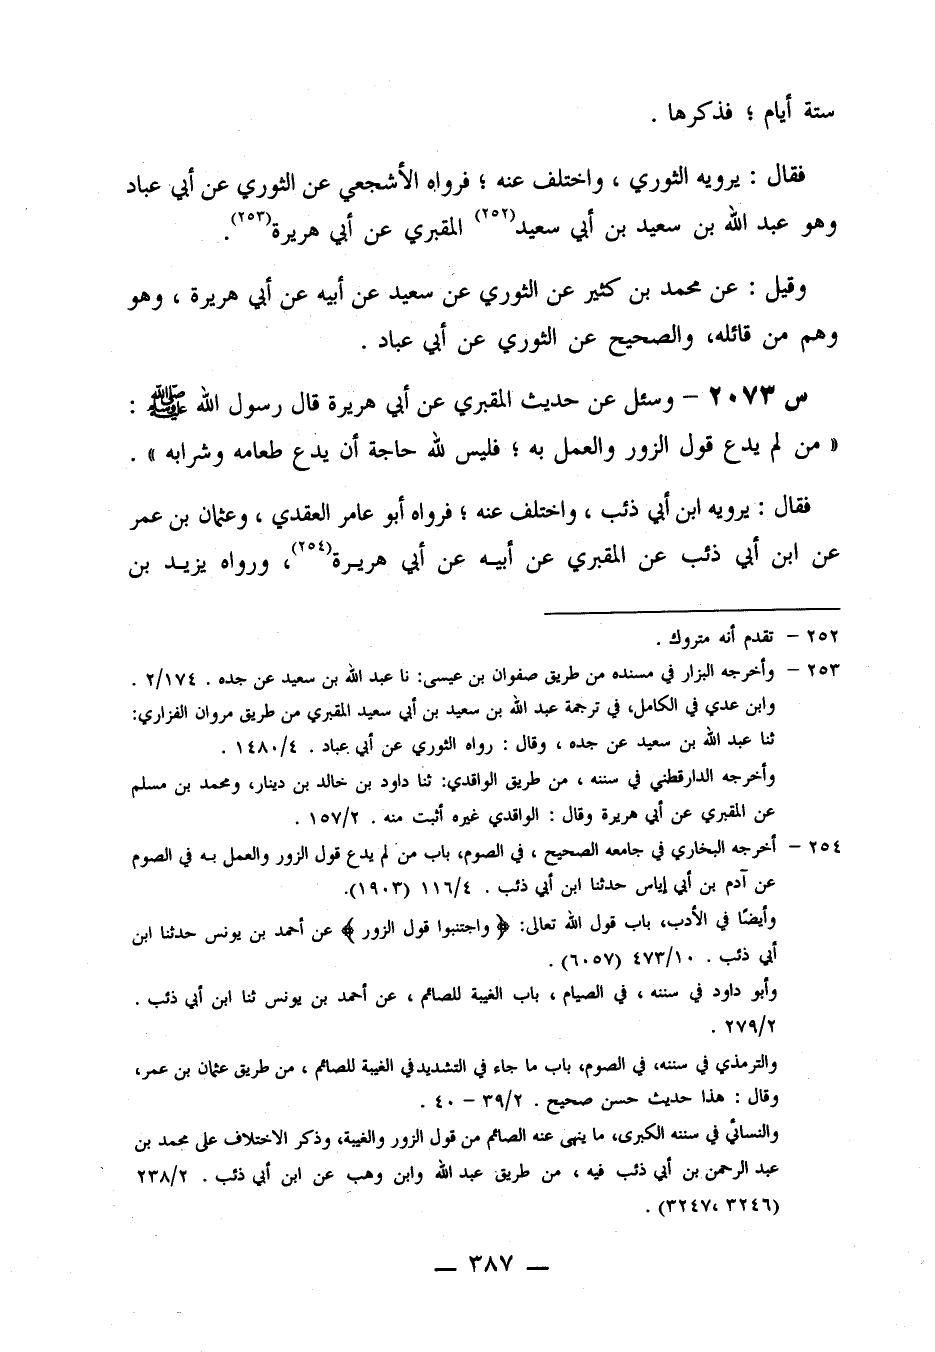 ستة أيام ؛ فذكرها .
فقال : يرويه الثوري ، واختلف عنه ؛ فرواه الأشجعي عن الثوري عن أبي عباد
وهو عبد الله بن سعيد بن أبي سعيد(٢٥٢) المقبري عن أبي هريرة(٢٥٣).
وقيل : عن محمد بن كثير عن الثوري عن سعيد عن أبيه عن أبي هريرة ، وهو
وهم من قائله، والصحيح عن الثوري عن أبي عباد .
س ٢٠٧٣ – وسئل عن حديث المقبري عن أبي هريرة قال رسول الله ﷺ :
« من لم يدع قول الزور والعمل به ؛ فليس لله حاجة أن يدع طعامه وشرابه » .
فقال : يرويه ابن أبي ذئب ، واختلف عنه ؛ فرواه أبو عامر العقدي ، وعثمان بن عمر
عن ابن أبي ذئب عن المقبري عن أبيه عن أبي هريرة(٢٥٤)، ورواه يزيد بن
٢٥٢ – تقدم أنه متروك .
٢٥٣ – وأخرجه البزار في مسنده من طريق صفوان بن عيسى: نا عبد الله بن سعيد عن جده . ٢/١٧٤ .
وابن عدي في الكامل، في ترجمة عبد الله بن سعيد بن أبي سعيد المقبري من طريق مروان الفزاري:
ثنا عبد الله بن سعيد عن جده ، وقال : رواه الثوري عن أبي عباد . ١٤٨٠/٤ .
وأخرجه الدارقطني في سننه ، من طريق الواقدي: ثنا داود بن خالد بن دينار، ومحمد بن مسلم
عن المقبري عن أبي هريرة وقال : الواقدي غيره أثبت منه . ١٥٧/٢ .
٢٥٤ – أخرجه البخاري في جامعه الصحيح ، في الصوم، باب من لم يدع قول الزور والعمل به في الصوم
عن آدم بن أبي إياس حدثنا ابن أبي ذئب . ١١٦/٤ (١٩٠٣).
وأيضًا في الأدب، باب قول الله تعالى: ﴿ واجتنبوا قول الزور ﴾ عن أحمد بن يونس حدثنا ابن
أبي ذئب . ٤٧٣/١٠ (٦٠٥٧) .
وأبو داود في سننه ، في الصيام ، باب الغيبة للصائم ، عن أحمد بن يونس ثنا ابن أبي ذئب .
٢٧٩/٢ .
والترمذي في سننه، في الصوم، باب ما جاء في التشديد في الغيبة للصائم ، من طريق عثمان بن عمر،
وقال : هذا حديث حسن صحيح . ٣٩/٢ – ٤٠ .
والنسائي في سننه الكبرى، ما ينهى عنه الصائم من قول الزور والغيبة، وذكر الاختلاف على محمد بن
عبد الرحمن بن أبي ذئب فيه ، من طريق عبد الله وابن وهب عن ابن أبي ذئب . ٢٣٨/٢
(٣٢٤٦ ،٣٢٤٧) .
— ٣٨٧ —